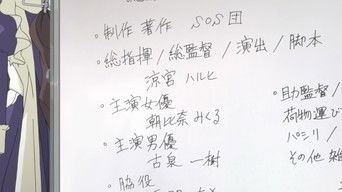 ・制作 著作 SOS団
・総指揮 / 総監督 / 演出 / 脚本
涼宮 ハルヒ
・主演女優
朝比奈 みくる
・主演男優
古泉 一樹
・脇役
・助監督/
荷物運び
パシリ/
その他 雑